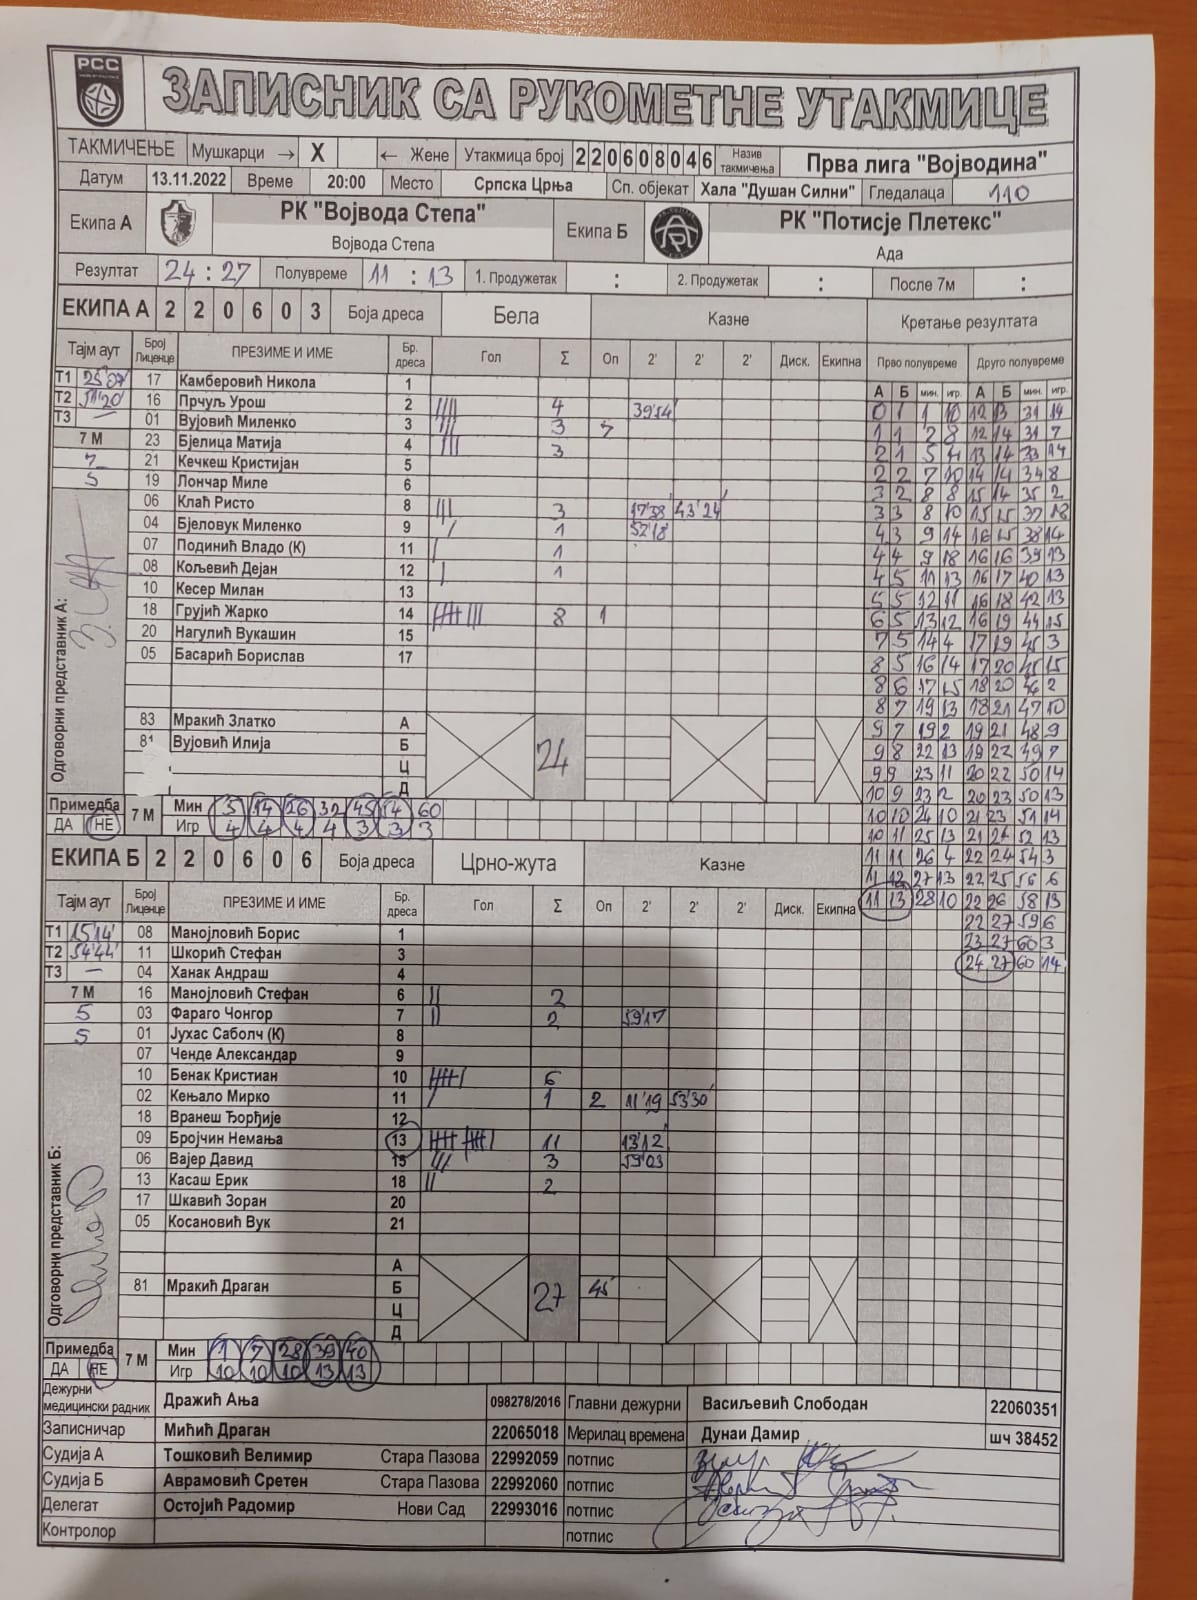 РСС
ЗАПИСНИК СА РУКОМЕТНЕ УТАКМИЦЕ
ТАКМИЧЕЊЕ Мушкарци → X ← Жене Утакмица број 220608046 Назив такмичења Прва лига "Војводина"
Датум 13.11.2022 Време 20:00 Место Српска Црња Сп. објекат Хала "Душан Силни" Гледалаца 110
Екипа А РК "Војвода Степа" Екипа Б РК "Потисје Плетекс"
Војвода Степа Ада
Резултат 24 : 27 Полувреме 11 : 13 1. Продужетак : 2. Продужетак : После 7м :
ЕКИПА А 2 2 0 6 0 3 Боја дреса Бела Казне Кретање резултата
Тајм аут Број Лиценце ПРЕЗИМЕ И ИМЕ Бр. дреса Гол Σ Оп 2' 2' 2' Диск. Екипна Прво полувреме Друго полувреме
А Б мин. игр. А Б мин. игр.
Т1 17 Камберовић Никола 1
Т2 51'20' 16 Прчуљ Урош 2 |||| 4 39'54
Т3 — 01 Вујовић Миленко 3 ||| 3
7 М 23 Бјелица Матија 4 ||| 3
7 21 Кечкеш Кристијан 5
5 19 Лончар Миле 6
06 Клаћ Ристо 8 ||| 3 17'38 43'24
04 Бјеловук Миленко 9 | 1 52'18
07 Подинић Владо (К) 11 | 1
08 Кољевић Дејан 12 | 1
10 Кесер Милан 13
18 Грујић Жарко 14 8 1
20 Нагулић Вукашин 15
05 Басарић Борислав 17
83 Мракић Златко А
81 Вујовић Илија Б 24
Ц
Д
Одговорни представник А:
Примедба 7 М Мин 5 14 26 32 45 54 60
ДА НЕ Игр 4 4 4 4 3 3 3
0 1 1 10 12 13 31 14
1 1 2 8 12 14 31 7
2 1 5 4 13 14 33 14
2 2 7 10 14 14 34 8
3 2 8 8 15 14 35 2
3 3 8 10 15 15 37 18
4 3 9 14 16 15 38 14
4 4 9 18 16 16 39 13
4 5 11 13 16 17 40 13
5 5 12 11 16 18 42 13
6 5 13 12 16 19 44 15
7 5 14 4 17 19 45 3
8 5 16 14 17 20 45 15
8 6 17 15 18 20 46 2
8 7 19 13 18 21 47 10
9 7 19 2 19 21 48 9
9 8 22 13 19 22 49 7
9 9 23 11 20 22 50 14
10 9 23 2 20 23 50 13
10 10 24 10 21 23 51 14
10 11 25 13 21 24 52 13
11 11 26 4 22 24 54 3
11 12 27 13 22 25 56 6
11 13 28 10 22 26 58 13
22 27 59 6
23 27 60 3
24 27 60 14
ЕКИПА Б 2 2 0 6 0 6 Боја дреса Црно-жута Казне
Тајм аут Број Лиценце ПРЕЗИМЕ И ИМЕ Бр. дреса Гол Σ Оп 2' 2' 2' Диск. Екипна
Т1 15'14' 08 Манојловић Борис 1
Т2 54'44' 11 Шкорић Стефан 3
Т3 — 04 Ханак Андраш 4
7 М 16 Манојловић Стефан 6 || 2
5 03 Фараго Чонгор 7 || 2 59'17
5 01 Јухас Саболч (К) 8
07 Ченде Александар 9
10 Бенак Кристиан 10 6
02 Кењало Мирко 11 | 1 2 11'19 53'30'
18 Вранеш Ђорђије 12
09 Бројчин Немања 13 11 13'12'
06 Вајер Давид 15 ||| 3 59'03
13 Касаш Ерик 18 || 2
17 Шкавић Зоран 20
05 Косановић Вук 21
А
81 Мракић Драган Б 27 45'
Ц
Д
Одговорни представник Б:
Примедба 7 М Мин 1 7 28 39 40
ДА НЕ Игр 10 10 10 13 13
Дежурни медицински радник Дражић Ања 098278/2016 Главни дежурни Васиљевић Слободан 22060351
Записничар Мићић Драган 22065018 Мерилац времена Дунаи Дамир шч 38452
Судија А Тошковић Велимир Стара Пазова 22992059 потпис
Судија Б Аврамовић Сретен Стара Пазова 22992060 потпис
Делегат Остојић Радомир Нови Сад 22993016 потпис
Контролор потпис